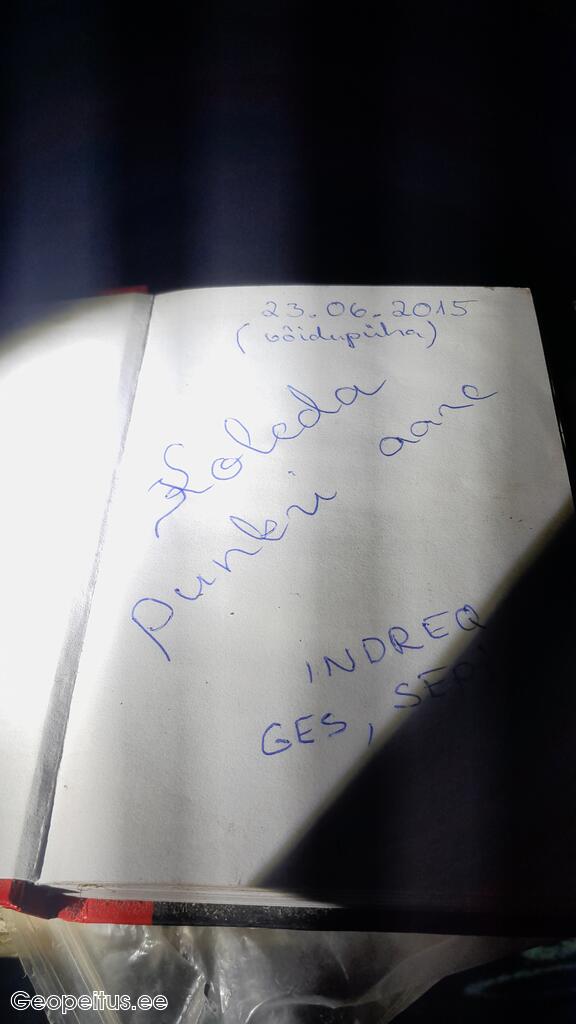 23.06.2015
(võidupüha)
Koleda
punkri aare
INDREQ
GES,
Geopeitus.ee